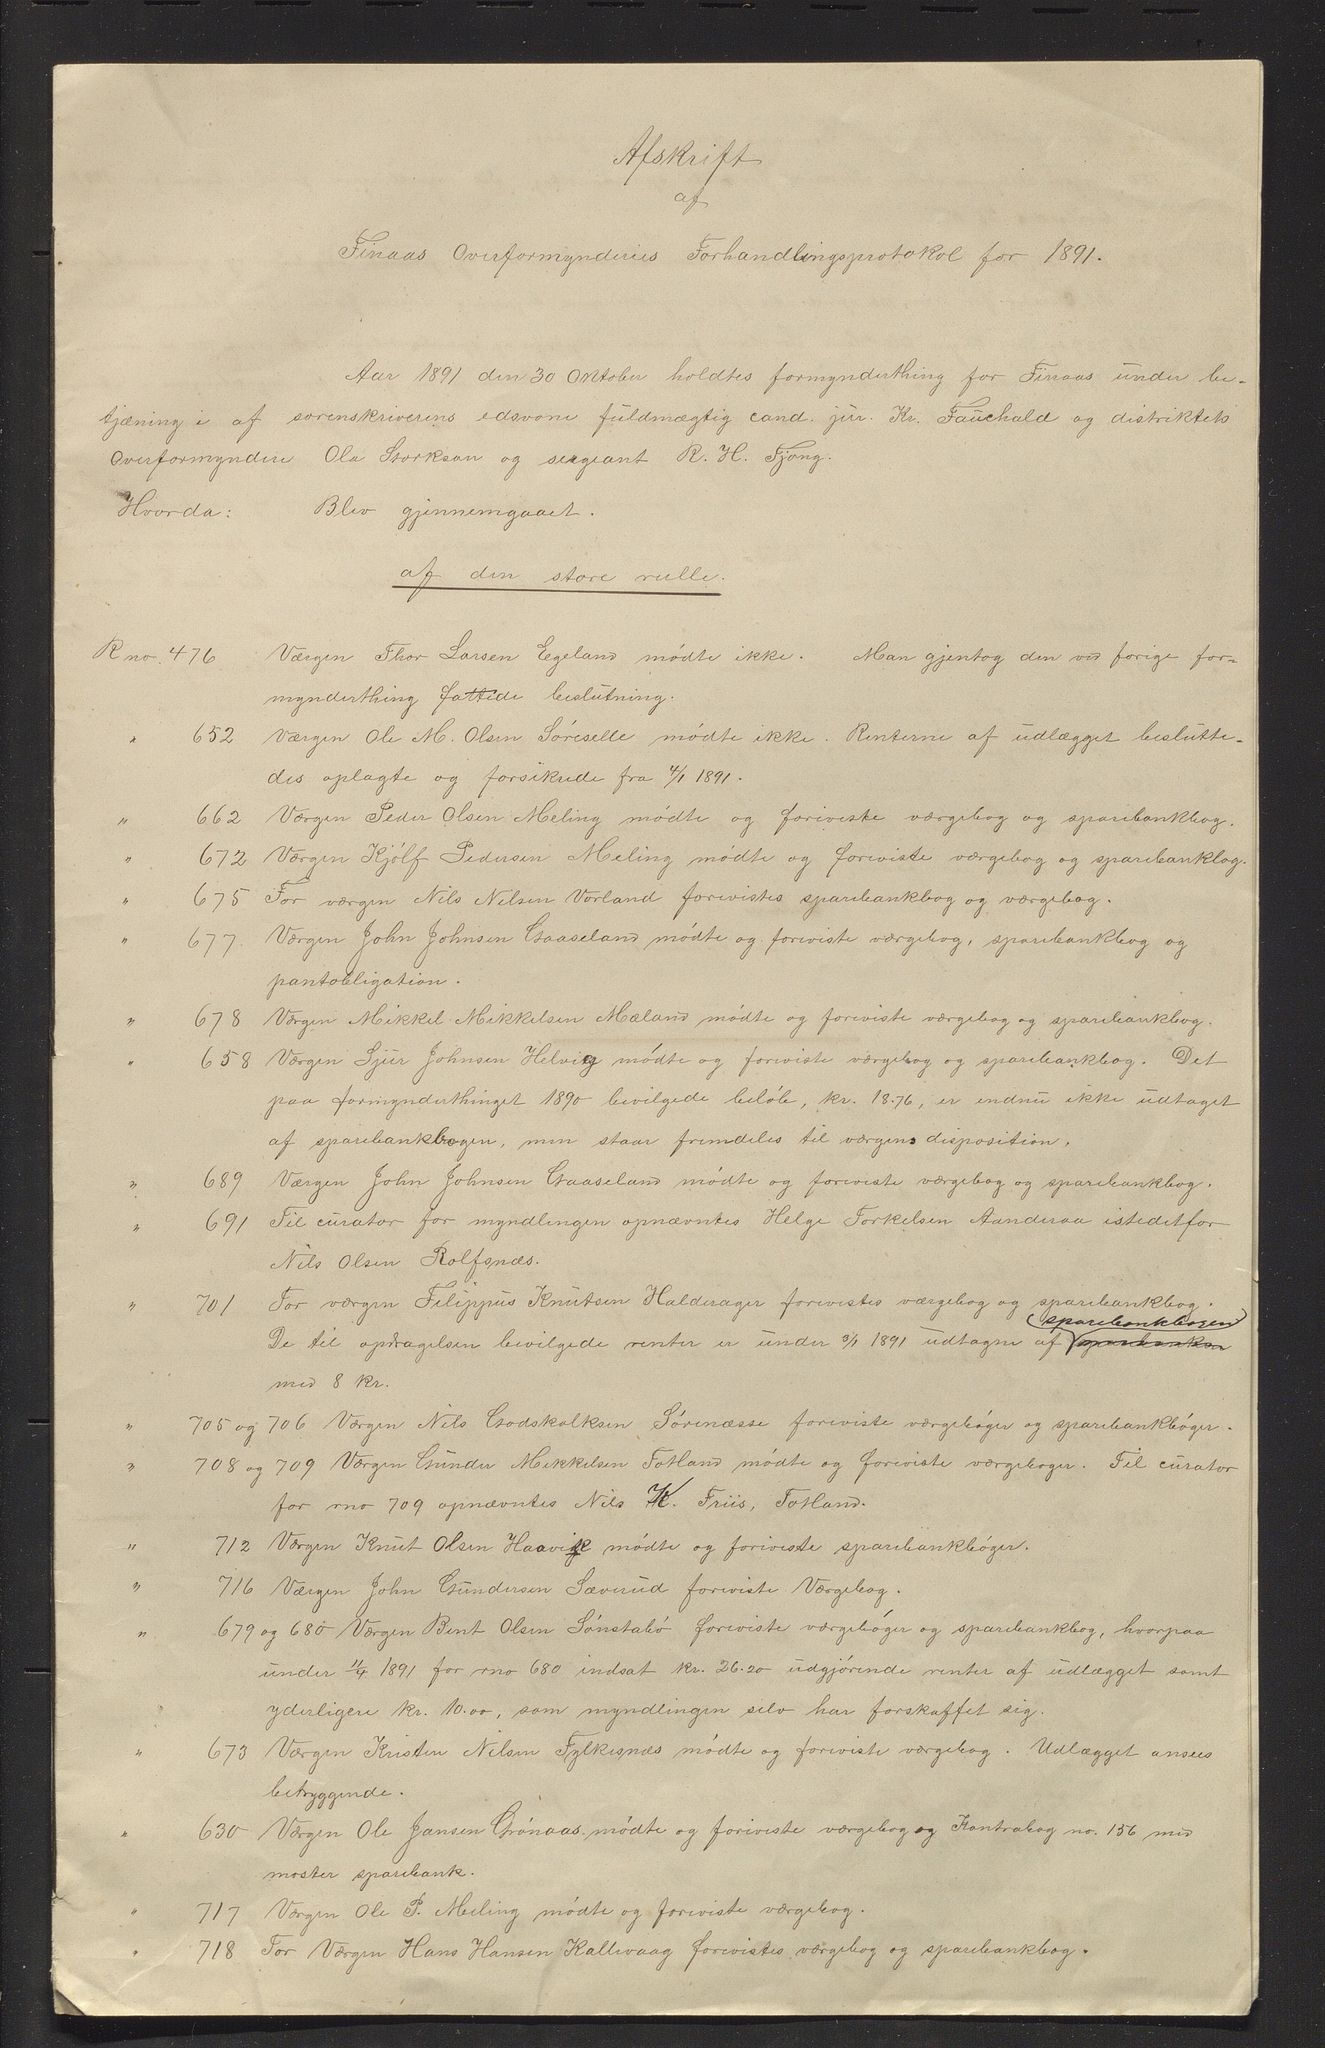 Afskrift
af
Finaas Overformynderies Forhandlingsprotokol for 1891.
Aar 1891 den 30 Oktober holdtes formynderthing for Finaas under be-
tjæning i af sorenskriverens edsvorne fuldmægtig cand. jur. Kr. Fauchald og distriktets
Overformyndere Ola Storksan og sergeant R. H. Fjong.
Hvorda: Blev gjennemgaaet.
af den store rulle.
R no. 476 Værgen Thor Larsen Egeland mødte ikke. Man gjentog den ved forige for-
mynderthing fattede beslutning.
" 652 Værgen Ole M. Olsen Søreselle mødte ikke. Renterne af udlægget beslutte-
des oplagte og forsikrede fra 4/1 1891.
" 662 Værgen Peder Olsen Meling mødte og foreviste værgebog og sparebankbog.
" 672 Værgen Kjølf Pedersen Meling mødte og foreviste værgebog og sparebankbog.
" 675 For værgen Nils Nilsen Vorland forevistes sparebankbog og værgebog.
" 677 Værgen John Johnsen Gaaseland mødte og foreviste værgebog, sparebankbog og
pantobligation.
" 678 Værgen Mikkel Mikkelsen Mæland mødte og foreviste værgebog og sparebankbog.
" 658 Værgen Sjur Johnsen Helvig mødte og foreviste værgebog og sparebankbog. Det
paa formynderthinget 1890 bevilgede beløb, kr. 18.76, er endnu ikke udtaget
af sparebankbogen, men staar fremdeles til værgens disposition.
" 689 Værgen John Johnsen Gaaseland mødte og foreviste værgebog og sparebankbog.
" 691 Til curator for myndlingen opnævntes Helge Torkelsen Aanderaa istedetfor
Nils Olsen Rolfsnæs.
" 701 For værgen Filippus Knutsen Halderager forevistes værgebog og sparebankbog.
sparebankbogen
De til opdragelsen bevilgede renter er under 3/1 1891 udtagne af sparebanken
med 8 kr.
" 705 og 706 Værgen Nils Godskalksen Sørenæsse foreviste værgebøger og sparebankbøger.
" 708 og 709 Værgen Gunder Mikkelsen Totland mødte og foreviste værgebøger. Til curator
for rno 709 opnævntes Nils K. Friis, Totland.
" 712 Værgen Knut Olsen Haavik mødte og foreviste sparebankbøger.
" 716 Værgen John Gundersen Sæverud foreviste Værgebog.
" 679 og 680 Værgen Bent Olsen Sønstabø foreviste værgebøger og sparebankbog, hvorpaa
under 11/4 1891 for rno 680 indsat kr. 26.20 udgjørende renter af udlægget samt
yderligere kr. 10.00, som myndlingen selv har forskaffet sig.
" 673 Værgen Kristen Nilsen Fylkesnæs mødte og foreviste værgebog. Udlægget ansees
betryggende.
" 630 Værgen Ole Jansen Grønaas mødte og foreviste værgebog og Kontrabog no. 156 med
moster sparebank.
" 717 Værgen Ole P. Meling mødte og foreviste værgebog.
" 718 For Værgen Hans Hansen Kallevaag forevistes værgebog og sparebankbog.